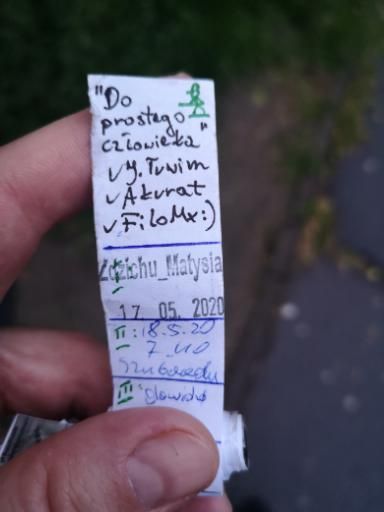 "Do
prostego
człowieka"
✓ J. Tuwim
✓ Akurat
✓ FiloMx:)
I:
Zdzichu_Matysia
17. 05. 2020
II: 18.5.20
7 40
III: